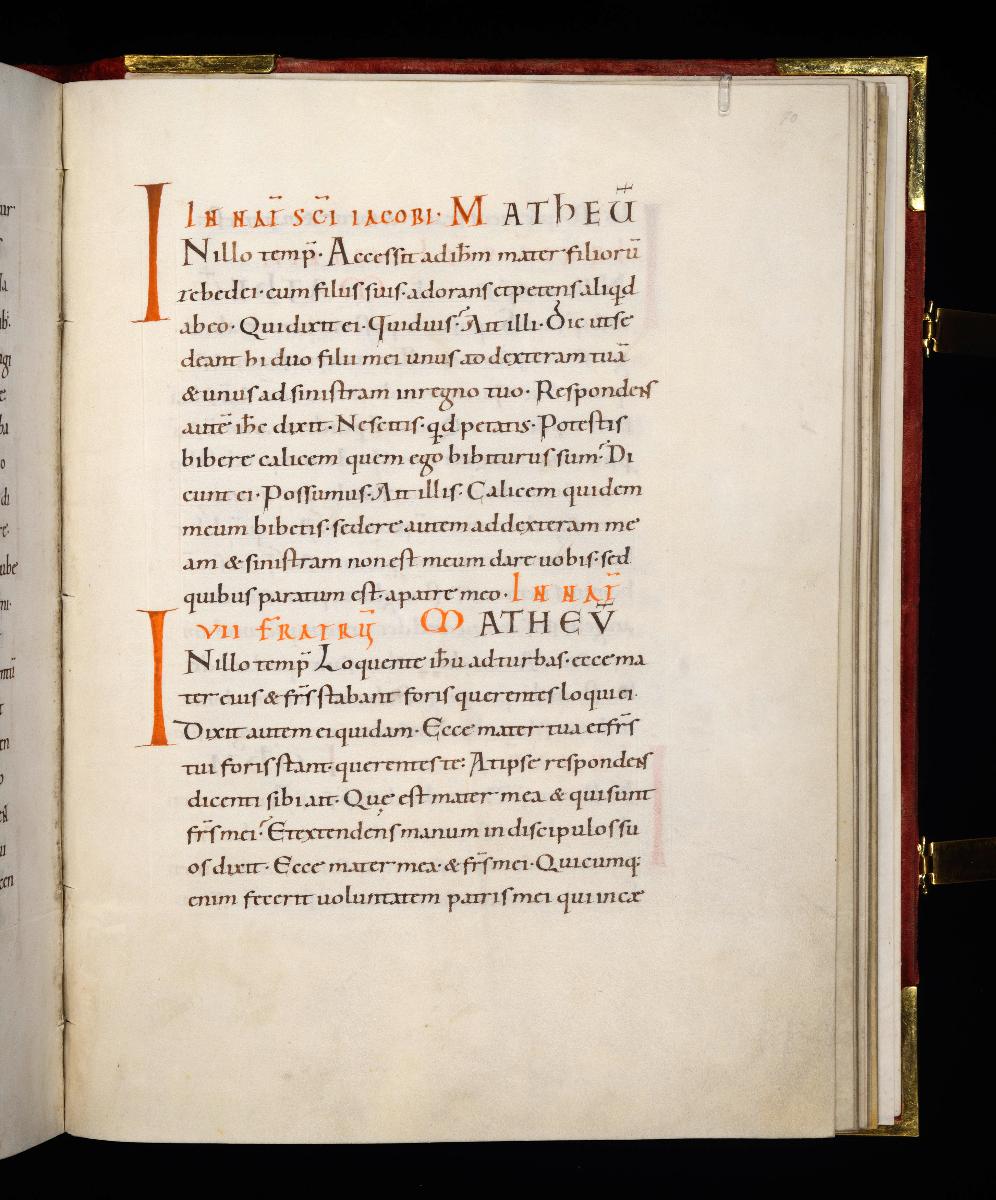 70
IN NAT̄ SC̄I IACOBI· MATHEŪ
INillo temp̄· Accessit ad ih̄m mater filiorū
zebedei· cum filiis suis· adorans et petens aliqd
ab eo· Qui dixit ei· Quid uis? Ait illi· Dic ut se
deant hi duo filii mei unus ad dexteram tuā
& unus ad sinistram in regno tuo· Respondens
autē ih̄c dixit· Nescitis· qd petatis· Potestis
bibere calicem quem ego bibiturus sum? Di
cunt ei· Possumus· Ait illis· Calicem quidem
meum bibetis· sedere autem ad dexteram me
am & sinistram non est meum dare uobis· sed
quibus paratum est· a patre meo· IN NAT̄
VII FRATRŪ MATHEV̄
INillo temp̄ Loquente ih̄u ad turbas· ecce ma
ter eius & fr̄s stabant foris querentes loqui ei·
Dixit autem ei quidam· Ecce mater tua et fr̄s
tui foris stant· querentes te: At ipse respondens
dicenti sibi ait· Quę est mater mea & qui sunt
fr̄s mei? Et extendens manum in discipulos su
os dixit· Ecce mater mea· & fr̄s mei· Quicumq;
enim fecerit uoluntatem patris mei qui in cæ